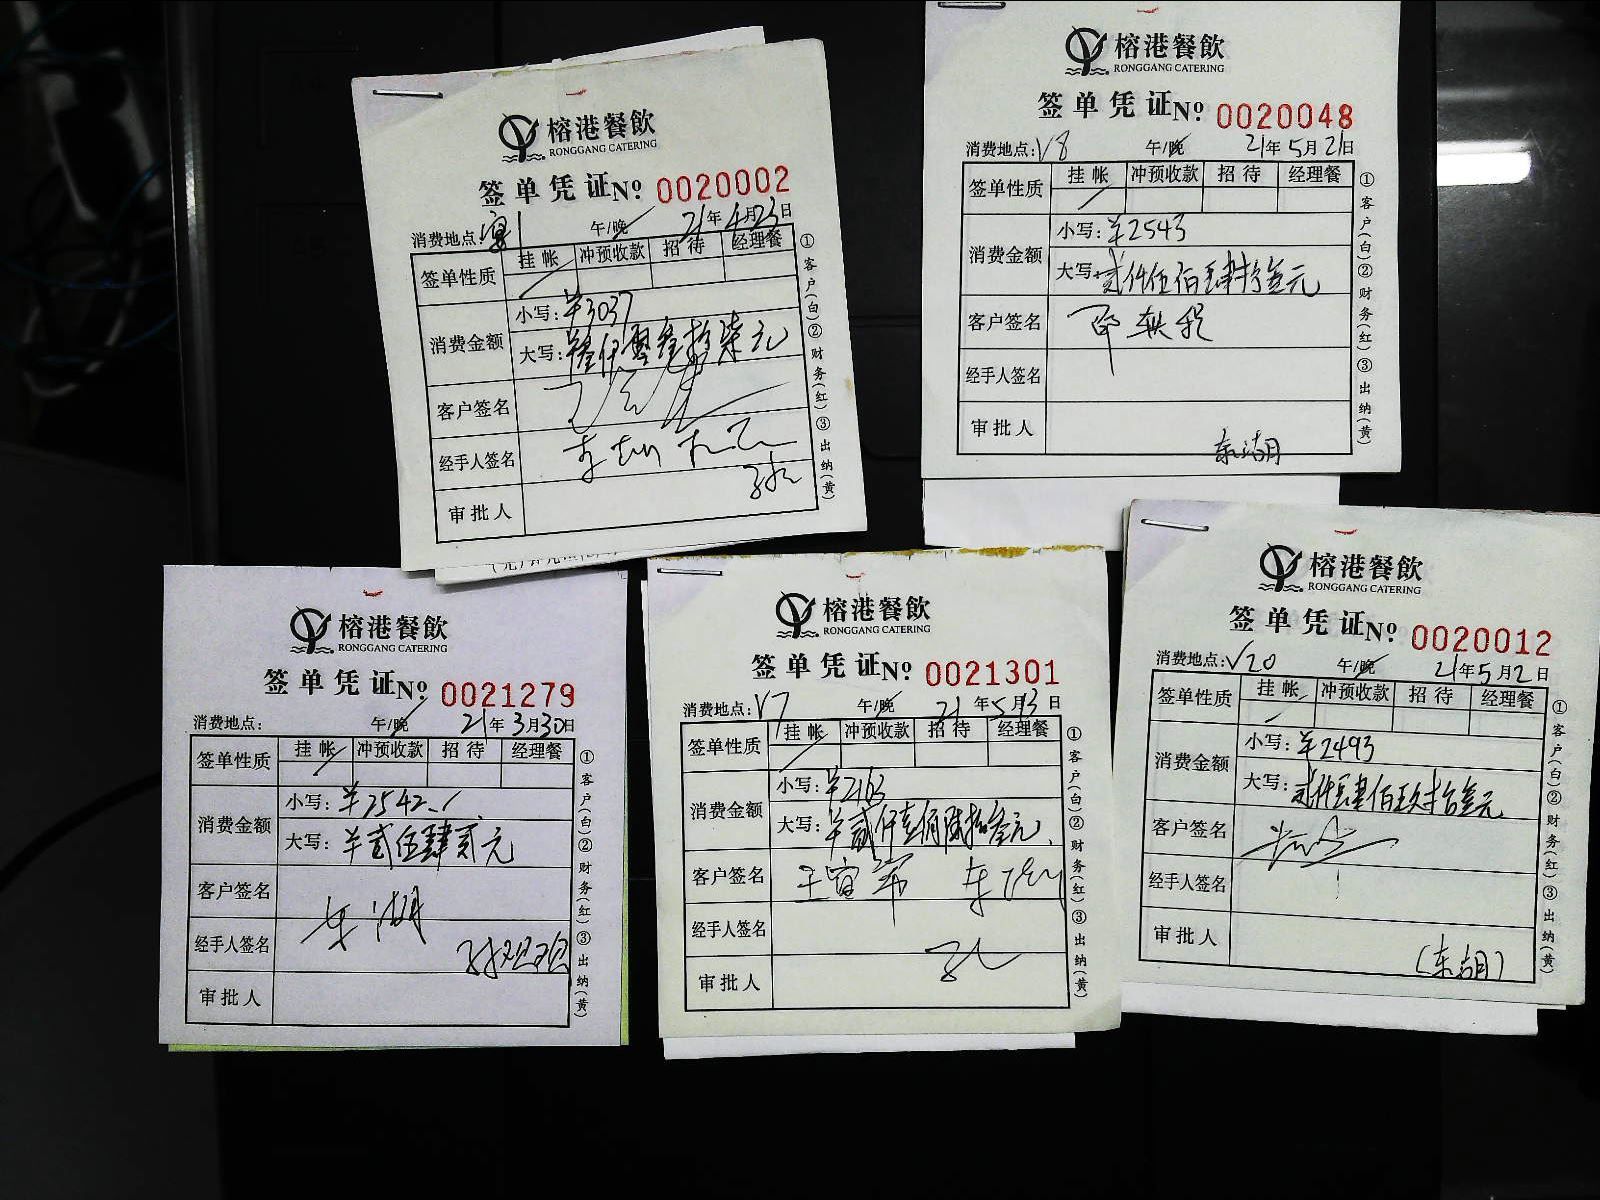 榕港餐飲
RONGGANG CATERING
签单凭证№ 0020002
消费地点:宴1 午/晚 21年4月23日
签单性质 挂帐 冲预收款 招待 经理餐
消费金额
小写:¥3037
大写:叁仟零叁拾柒元
客户签名
经手人签名
审批人
①客户(白)②财务(红)③出纳(黄)
榕港餐飲
RONGGANG CATERING
签单凭证№ 0020048
消费地点:V8 午/晚 21年5月21日
签单性质 挂帐 冲预收款 招待 经理餐
消费金额
小写:¥2543
大写:贰仟伍佰肆拾叁元
客户签名
经手人签名
审批人
东湖
①客户(白)②财务(红)③出纳(黄)
榕港餐飲
RONGGANG CATERING
签单凭证№ 0021279
消费地点: 午/晚 21年3月30日
签单性质 挂帐 冲预收款 招待 经理餐
消费金额
小写:¥2542
大写:¥贰伍肆贰元
客户签名 东湖
经手人签名
审批人
①客户(白)②财务(红)③出纳(黄)
榕港餐飲
RONGGANG CATERING
签单凭证№ 0021301
消费地点:V7 午/晚 21年5月13日
签单性质 挂帐 冲预收款 招待 经理餐
消费金额
小写:¥2163
大写:¥贰仟壹佰陆拾叁元
客户签名
经手人签名
审批人
①客户(白)②财务(红)③出纳(黄)
榕港餐飲
RONGGANG CATERING
签单凭证№ 0020012
消费地点:V20 午/晚 21年5月2日
签单性质 挂帐 冲预收款 招待 经理餐
消费金额
小写:¥2493
大写:贰仟肆佰玖拾叁元
客户签名
经手人签名
审批人
(东湖)
①客户(白)②财务(红)③出纳(黄)